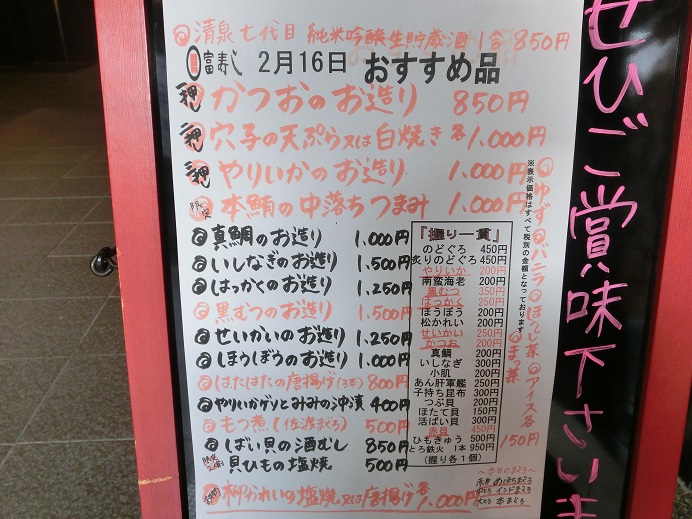 清泉七代目 純米吟醸生貯蔵酒 1合 850円
富寿し 2月16日 おすすめ品
かつおのお造り 850円
穴子の天ぷら又は白焼き 各1,000円
やりいかのお造り 1,000円
限定 本鮪の中落ちつまみ 1,000円
真鯛のお造り 1,000円
いしなぎのお造り 1,500円
はっかくのお造り 1,250円
黒むつのお造り 1,500円
せいかいのお造り 1,250円
ほうぼうのお造り 1,000円
はたはたの唐揚げ(3本) 800円
やりいかゲソとみみの沖漬 400円
もつ煮(佐渡まぐろ) 500円
しばい貝の酒むし 850円
貝ひもの塩焼 500円
柳かれいの塩焼又は唐揚げ 各1,000円
『握り一貫』
のどぐろ 450円
炙りのどぐろ 450円
やりいか 200円
南蛮海老 200円
黒むつ 350円
はっかく 250円
ほうぼう 200円
松かれい 200円
せいかい 250円
かつお 200円
真鯛 200円
いしなぎ 300円
小肌 200円
あん肝軍艦 250円
子持ち昆布 300円
つぶ貝 200円
ほたて貝 150円
活ばい貝 300円
赤貝 450円
ひもきゅう 500円
とろ鉄火 1本 950円
(握り各1個)
※表示価格はすべて税別の金額となっております
ゆず バニラ ほうじ茶 アイス各 150円
まっ茶
~本日のまぐろ~
赤身 めばちまぐろ
中とろ インドまぐろ
大とろ 本まぐろ
ぜひご賞味下さいま